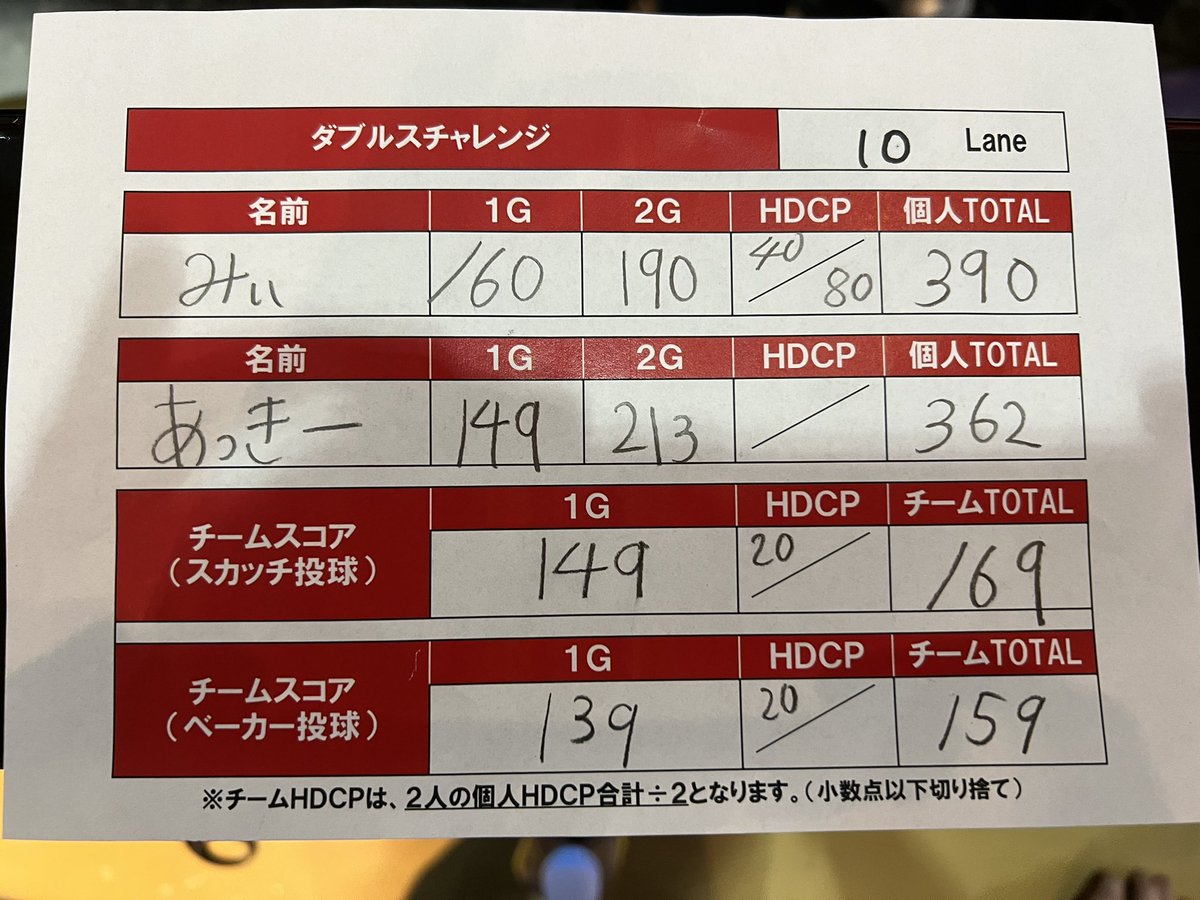 ダブルスチャレンジ 10 Lane
名前 1G 2G HDCP 個人TOTAL
みぃ 160 190 40/80 390
名前 1G 2G HDCP 個人TOTAL
あっきー 149 213 / 362
チームスコア
(スカッチ投球)
1G HDCP チームTOTAL
149 20/ 169
チームスコア
(ベーカー投球)
1G HDCP チームTOTAL
139 20/ 159
※チームHDCPは、2人の個人HDCP合計÷2となります。(小数点以下切り捨て)